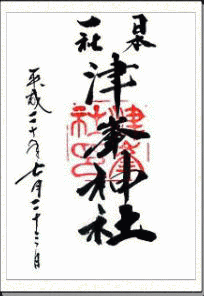 日本
一社
津峯神社
平成二十年七月二十三日
津峯
神社